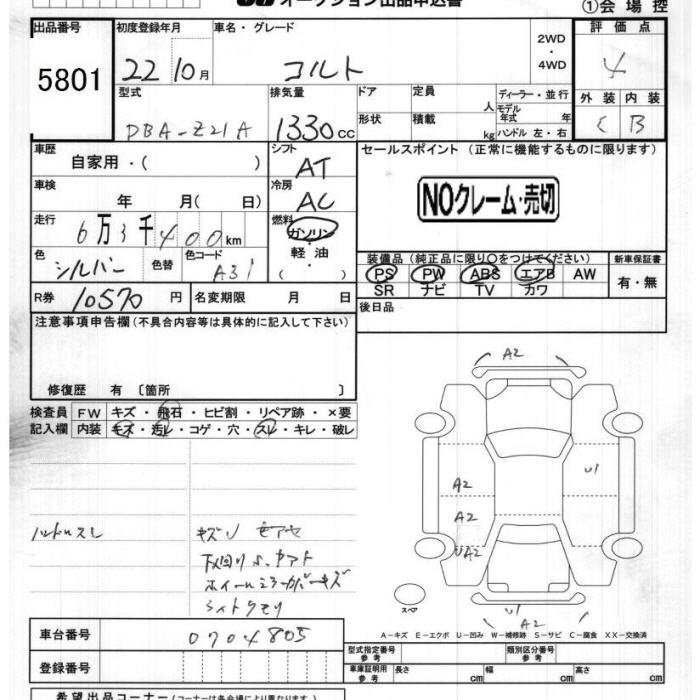 オークション出品申込書 ①会場控
出品番号 初度登録年月 車名・グレード 2WD・4WD 評価点
5801 22 10月 コルト 4
型式 排気量 ドア 定員 人 ディーラー・並行 外装 内装
DBA-Z21A 1330cc 形状 積載 kg モデル年式 年 ハンドル 左・右 C B
車歴 自家用・( ) シフト AT セールスポイント (正常に機能するものに限ります)
車検 年 月( 日) 冷房 AC NOクレーム・売切
走行 6万3千400km 燃料 ガソリン・軽油・( )
色 シルバー 色替 色コード A31 装備品 (純正品に限り○をつけてください) 新車保証書
PS PW ABS エアB AW 有・無
SR ナビ TV カワ
R券 10570円 名変期限 月 日 後日品
注意事項申告欄 (不具合内容等は具体的に記入して下さい)
修復歴 有 〔箇所 〕
検査員 FW キズ・飛石・ヒビ割・リペア跡・×要
記入欄 内装 キズ・汚レ・コゲ・穴・スレ・キレ・破レ
A2
A2
A2
UA2
U1
U1
A2
ハンドルスレ
下回り
スペア
A-キズ E-エクボ U-凹み W-補修跡 S-サビ C-腐食 XX-交換済
車台番号 0704805 型式指定番号 参考 類別区分番号 参考
登録番号 車体証明用 参考 長さ cm 幅 cm 高さ cm
希望出品コーナー